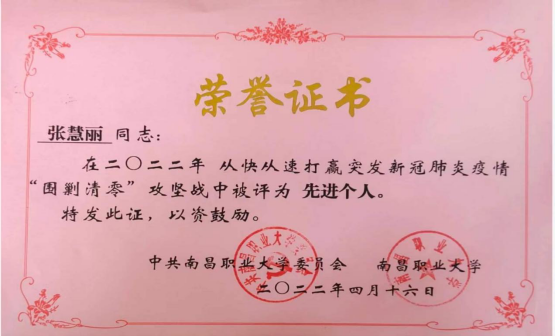 荣誉证书
张慧丽 同志：
在二〇二二年 从快从速打赢突发新冠肺炎疫情
“围剿清零”攻坚战中被评为 先进个人。
特发此证，以资鼓励。
中共南昌职业大学委员会 南昌职业大学
二〇二二年四月十六日